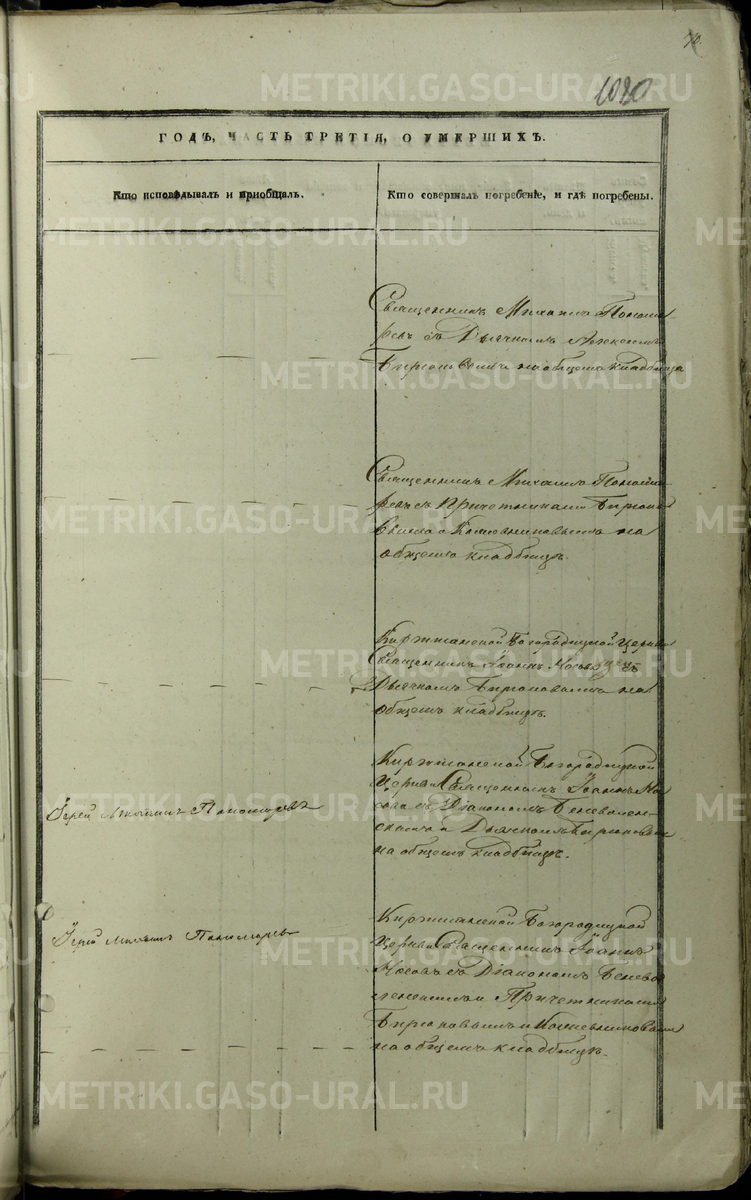 1020
ГОДЪ, ЧАСТЬ ТРЕТІЯ, О УМЕРШИХЪ.
Кто исповѣдывалъ и пріобщалъ.
Кто совершалъ погребеніе, и гдѣ погребены.
Священникъ Михаилъ Понома
ревъ съ Дьячкомъ Алексѣемъ
на общемъ кладбищѣ
Священникъ Михаилъ Понома
ревъ съ Причетниками Бирюко
вымъ и на
общемъ кладбищѣ.
Богородицкой церкви
Священникъ Іоаннъ Носовъ съ
Дьячкомъ Бирюковымъ на
общемъ кладбищѣ.
Іерей Михаилъ Пономаревъ
Богородицкой
Церкви Священникъ Іоаннъ Но
совъ съ Діакономъ Беневолен
скимъ и Дьячкомъ Бирюковымъ
на общемъ кладбищѣ.
Іерей Михаилъ Пономаревъ
Богородицкой
Церкви Священникъ Іоаннъ
Носовъ съ Діакономъ Бенево
ленскимъ и Причетниками
Бирюковымъ и
на общемъ кладбищѣ.
METRIKI.GASO-URAL.RU